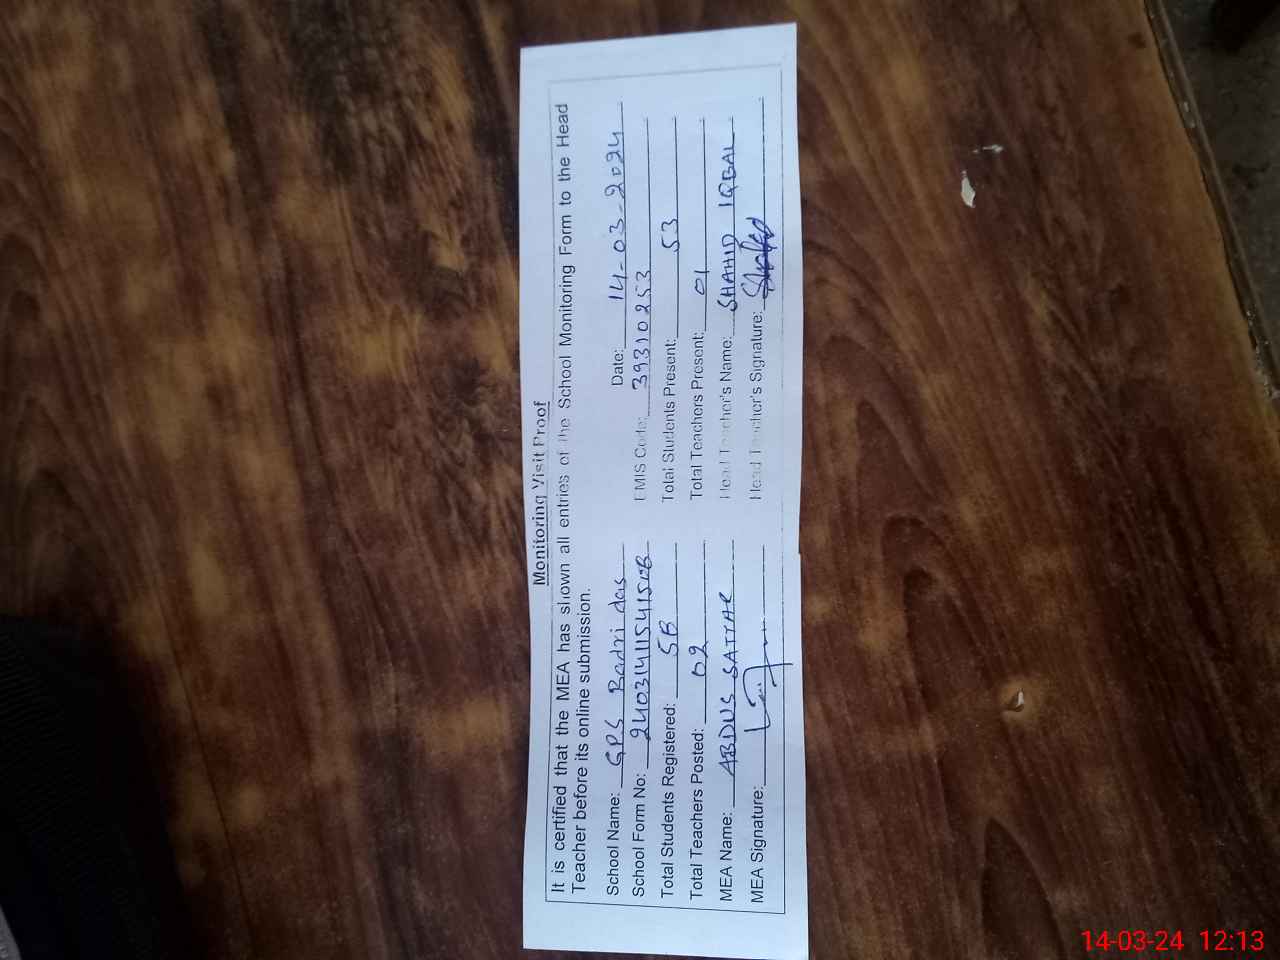 Monitoring Visit Proof
It is certified that the MEA has shown all entries of the School Monitoring Form to the Head
Teacher before its online submission.
School Name: GPS Badri das Date: 14-03-2024
School Form No: EMIS Code: 39310253
Total Students Registered: 58 Total Students Present: 53
Total Teachers Posted: 02 Total Teachers Present: 01
MEA Name: ABDUS SATTAR Head Teacher's Name: SHAHID IQBAL
MEA Signature: Head Teacher's Signature: Shahid
14-03-24 12:13